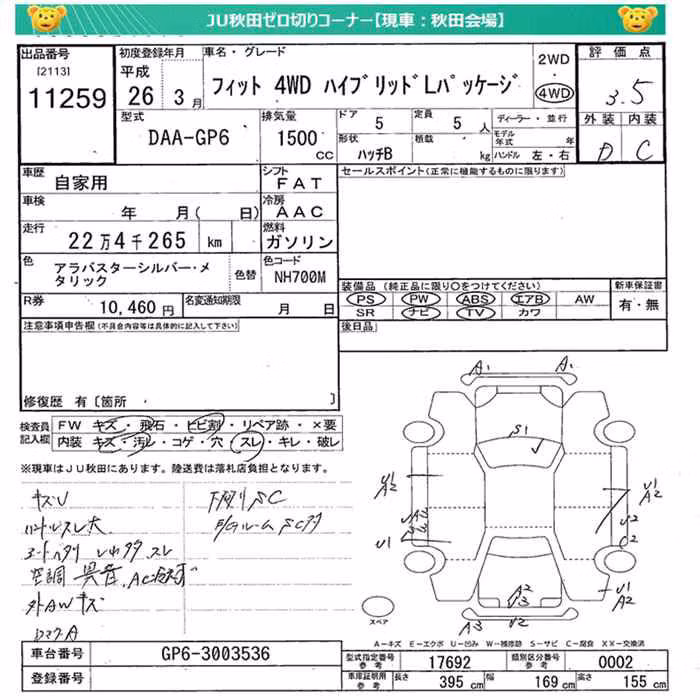 JU秋田ゼロ切りコーナー【現車：秋田会場】
出品番号 [2113] 11259
初度登録年月 平成 26 3月
車名・グレード フィット 4WD ハイブリッドLパッケージ
2WD 4WD
評価点 3.5
外装 内装
D C
型式 DAA-GP6
排気量 1500 CC
ドア 5 定員 5人
形状 ハッチB 積載 kg
ディーラー・並行
モデル年式 年
ハンドル 左・右
車歴 自家用
シフト FAT
セールスポイント(正常に機能するものに限ります)
車検 年 月( 日)
冷房 AAC
走行 22万4千265 km
燃料 ガソリン
色 アラバスターシルバー・メタリック
色替
色コード NH700M
装備品 (純正品に限り○をつけてください)
新車保証書
PS PW ABS エアB AW 有・無
SR ナビ TV カワ
R券 10,460円
名変通知期限 月 日
後日品
注意事項申告欄(不具合内容等は具体的に記入して下さい)
修復歴 有 [箇所 ]
検査員記入欄
FW キズ・飛石・ヒビ割・リペア跡・×要
内装 キズ・汚レ・コゲ・穴・スレ・キレ・破レ
※現車はJU秋田にあります。陸送費は落札店負担となります。
キズU
下廻りSC
ハンドルスレ大
空調 異音
外AWキズ
A1 A1
S1
U1 A2
U1 A2
U1
U2
C2
A2
U3
U1 A2
A3 U2
スペア
A－キズ E－エクボ U－凹み W－補修跡 S－サビ C－腐食 XX－交換済
車台番号 GP6-3003536
型式指定番号 参考 17692
類別区分番号 参考 0002
登録番号
車庫証明用 参考 長さ 395 cm 幅 169 cm 高さ 155 cm